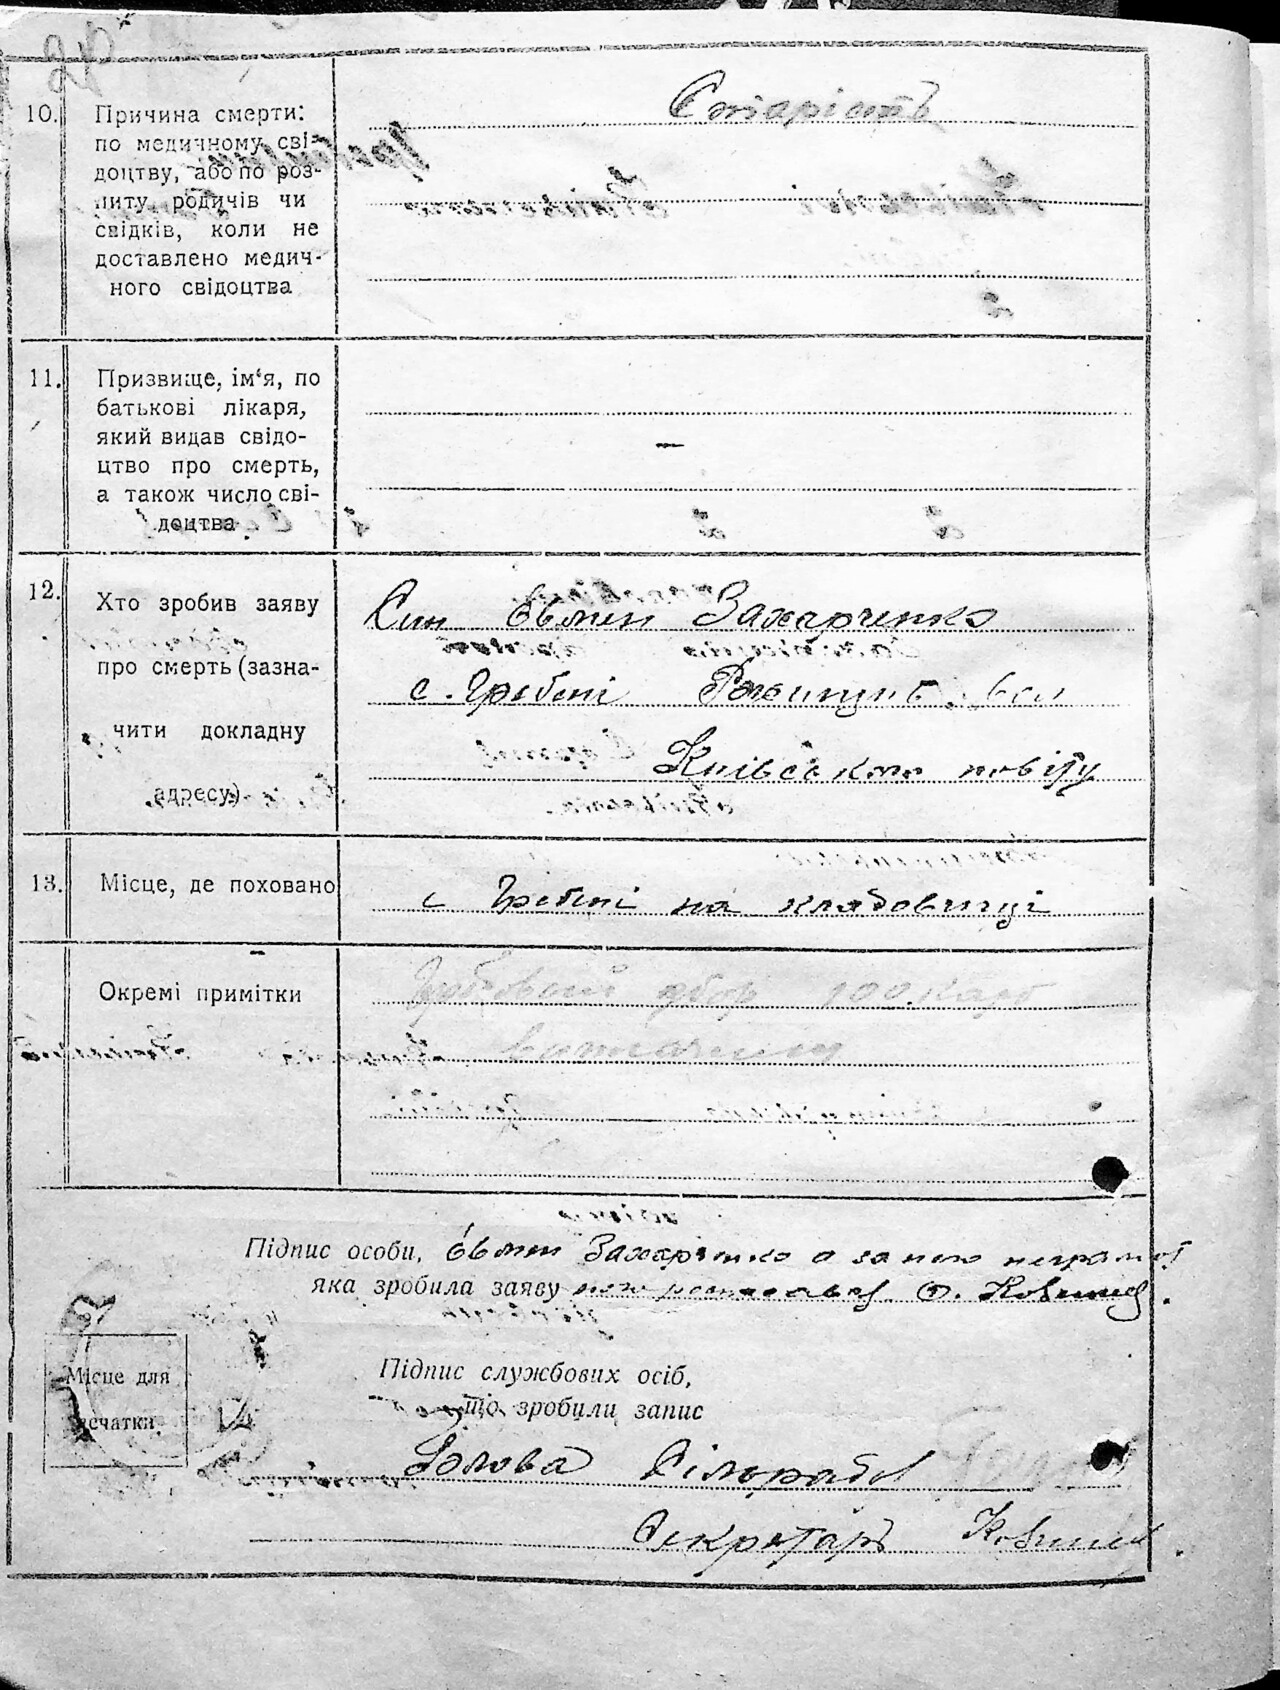 10. Причина смерти:
Старість
по медичному сві-
доцтву, або по роз-
питу родичів чи
свідків, коли не
доставлено медич-
ного свідоцтва
11. Призвище, ім‘я, по
батькові лікаря,
який видав свідо-
цтво про смерть,
а також число сві-
доцтва.
—
12. Хто зробив заяву
про смерть (зазна-
чити докладну
адресу)
Син Евмен Захарченко
с. Гребені Ржищів. вол
Київського повіту
13. Місце, де поховано
с Гребені на кладовищі
Окремі примітки
збор 100 карб
Підпис особи, Евмен Захарченко а за него неграмот
яка зробила заяву росписався
Місце для
печатки
Підпис службових осіб,
що зробили запис
Голова Сільради
Секретарь